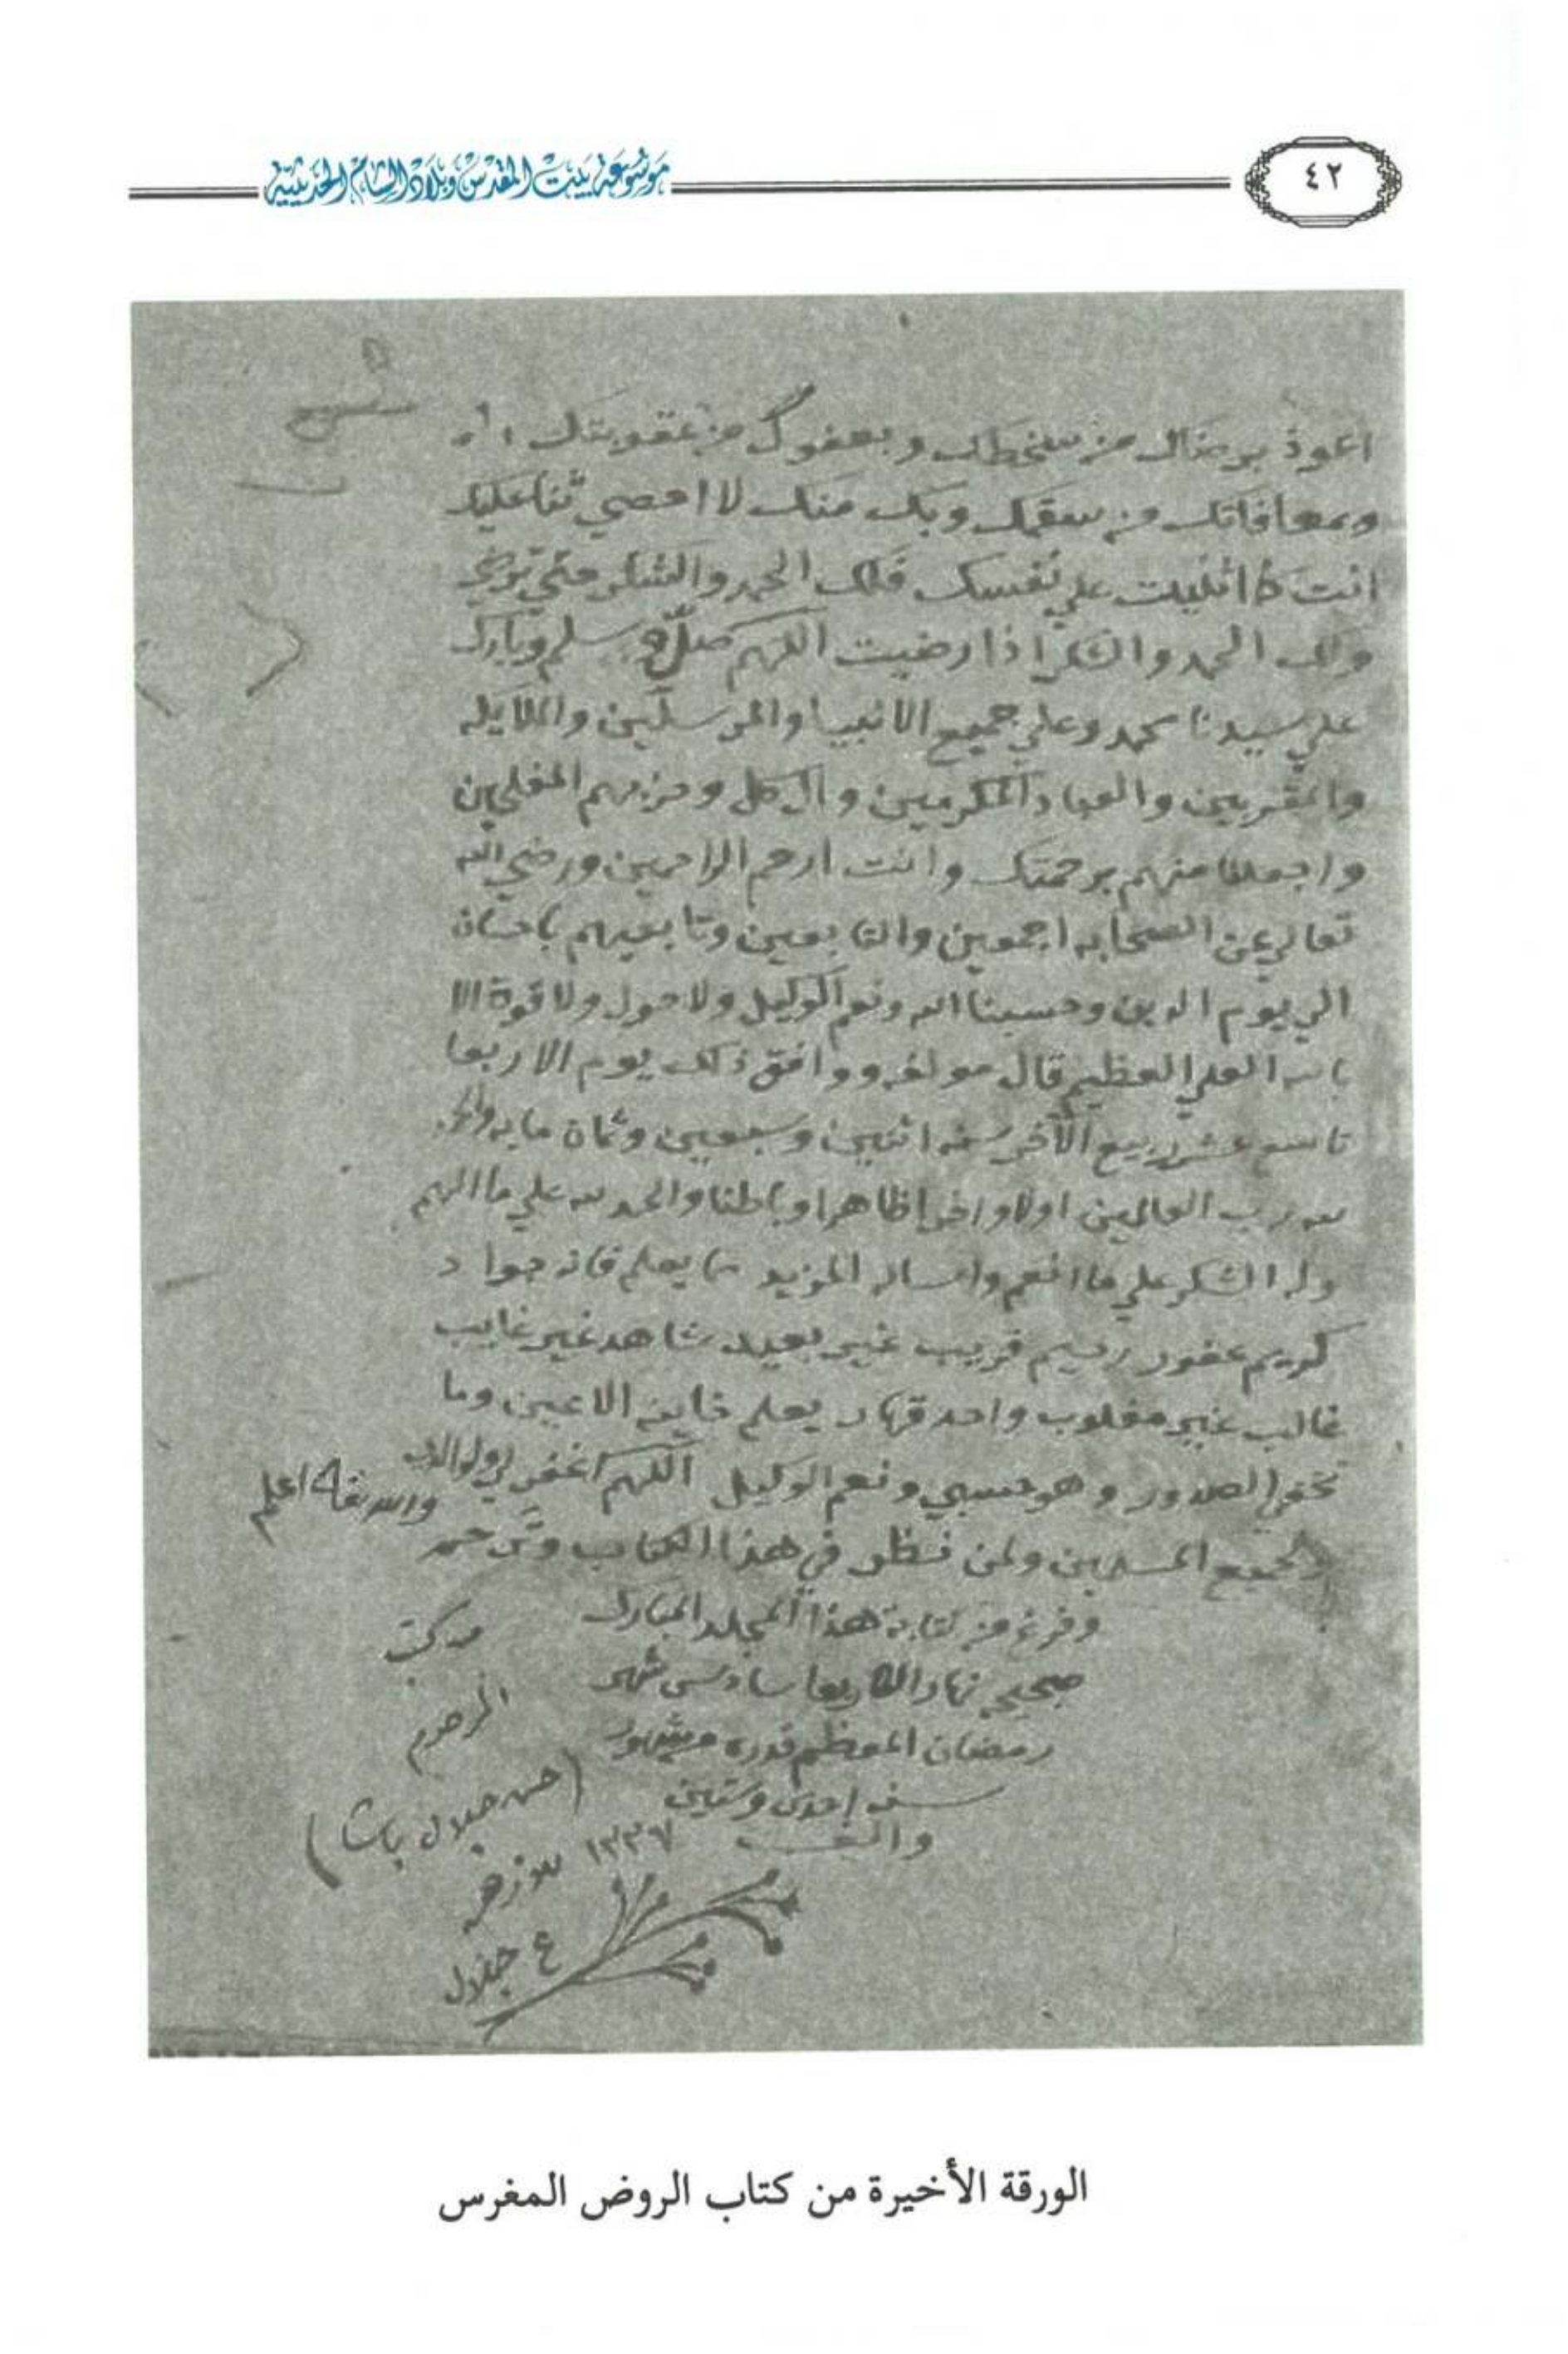 ٤٢
موسوعة بيت المقدس وبلاد الشام الحديثية
اعوذ برضاك من سخطك وبعفوك من عقوبتك
وبمعافاتك من سقمك وبك منك لا احصي ثنا عليك
انت كما اثنيت علي نفسك فلك الحمد والشكر حتي ترضي
ولك الحمد والشكر اذا رضيت اللهم صل وسلم وبارك
علي سيدنا محمد وعلي جميع الانبيا والمرسلين والملايكه
والمقربين والعباد المكرمين وآل كل وحزبهم المفلحين
واجعلنا منهم برحمتك وانت ارحم الراحمين ورضي الله
تعالي عن الصحابه اجمعين والتابعين وتابعيهم باحسان
الي يوم الدين وحسبنا الله ونعم الوكيل ولا حول ولا قوة الا
بالله العلي العظيم قال مولفه ووافق ذلك يوم الاربعا
تاسع عشر ربيع الآخر سنه اثنين وسبعين وثمان مايه والحمد
لله رب العالمين اولا واخرا ظاهرا وباطنا والحمد لله علي ما الهم
وله الشكر علي ما انعم واساله المزيد مما يعلم فانه جواد
كريم غفور رحيم قريب غير بعيد شاهد غير غايب
غالب غير مغلوب واحد قهار يعلم خاينه الاعين وما
تخفي الصدور وهو حسبي ونعم الوكيل اللهم اغفر لي ولوالدي
والله تعالى اعلم
ولجميع المسلمين ولمن نظر في هذا الكتاب وترحم
وفرغ من كتابة هذا المجلد المبارك
صبيحة نهار الاربعا سادس شهر
رمضان المعظم قدره
سنه إحدى وستين
والف
من كتب
المرحوم
(حسن جلال باشا)
١٣٣٧
ع جلال
الورقة الأخيرة من كتاب الروض المغرس